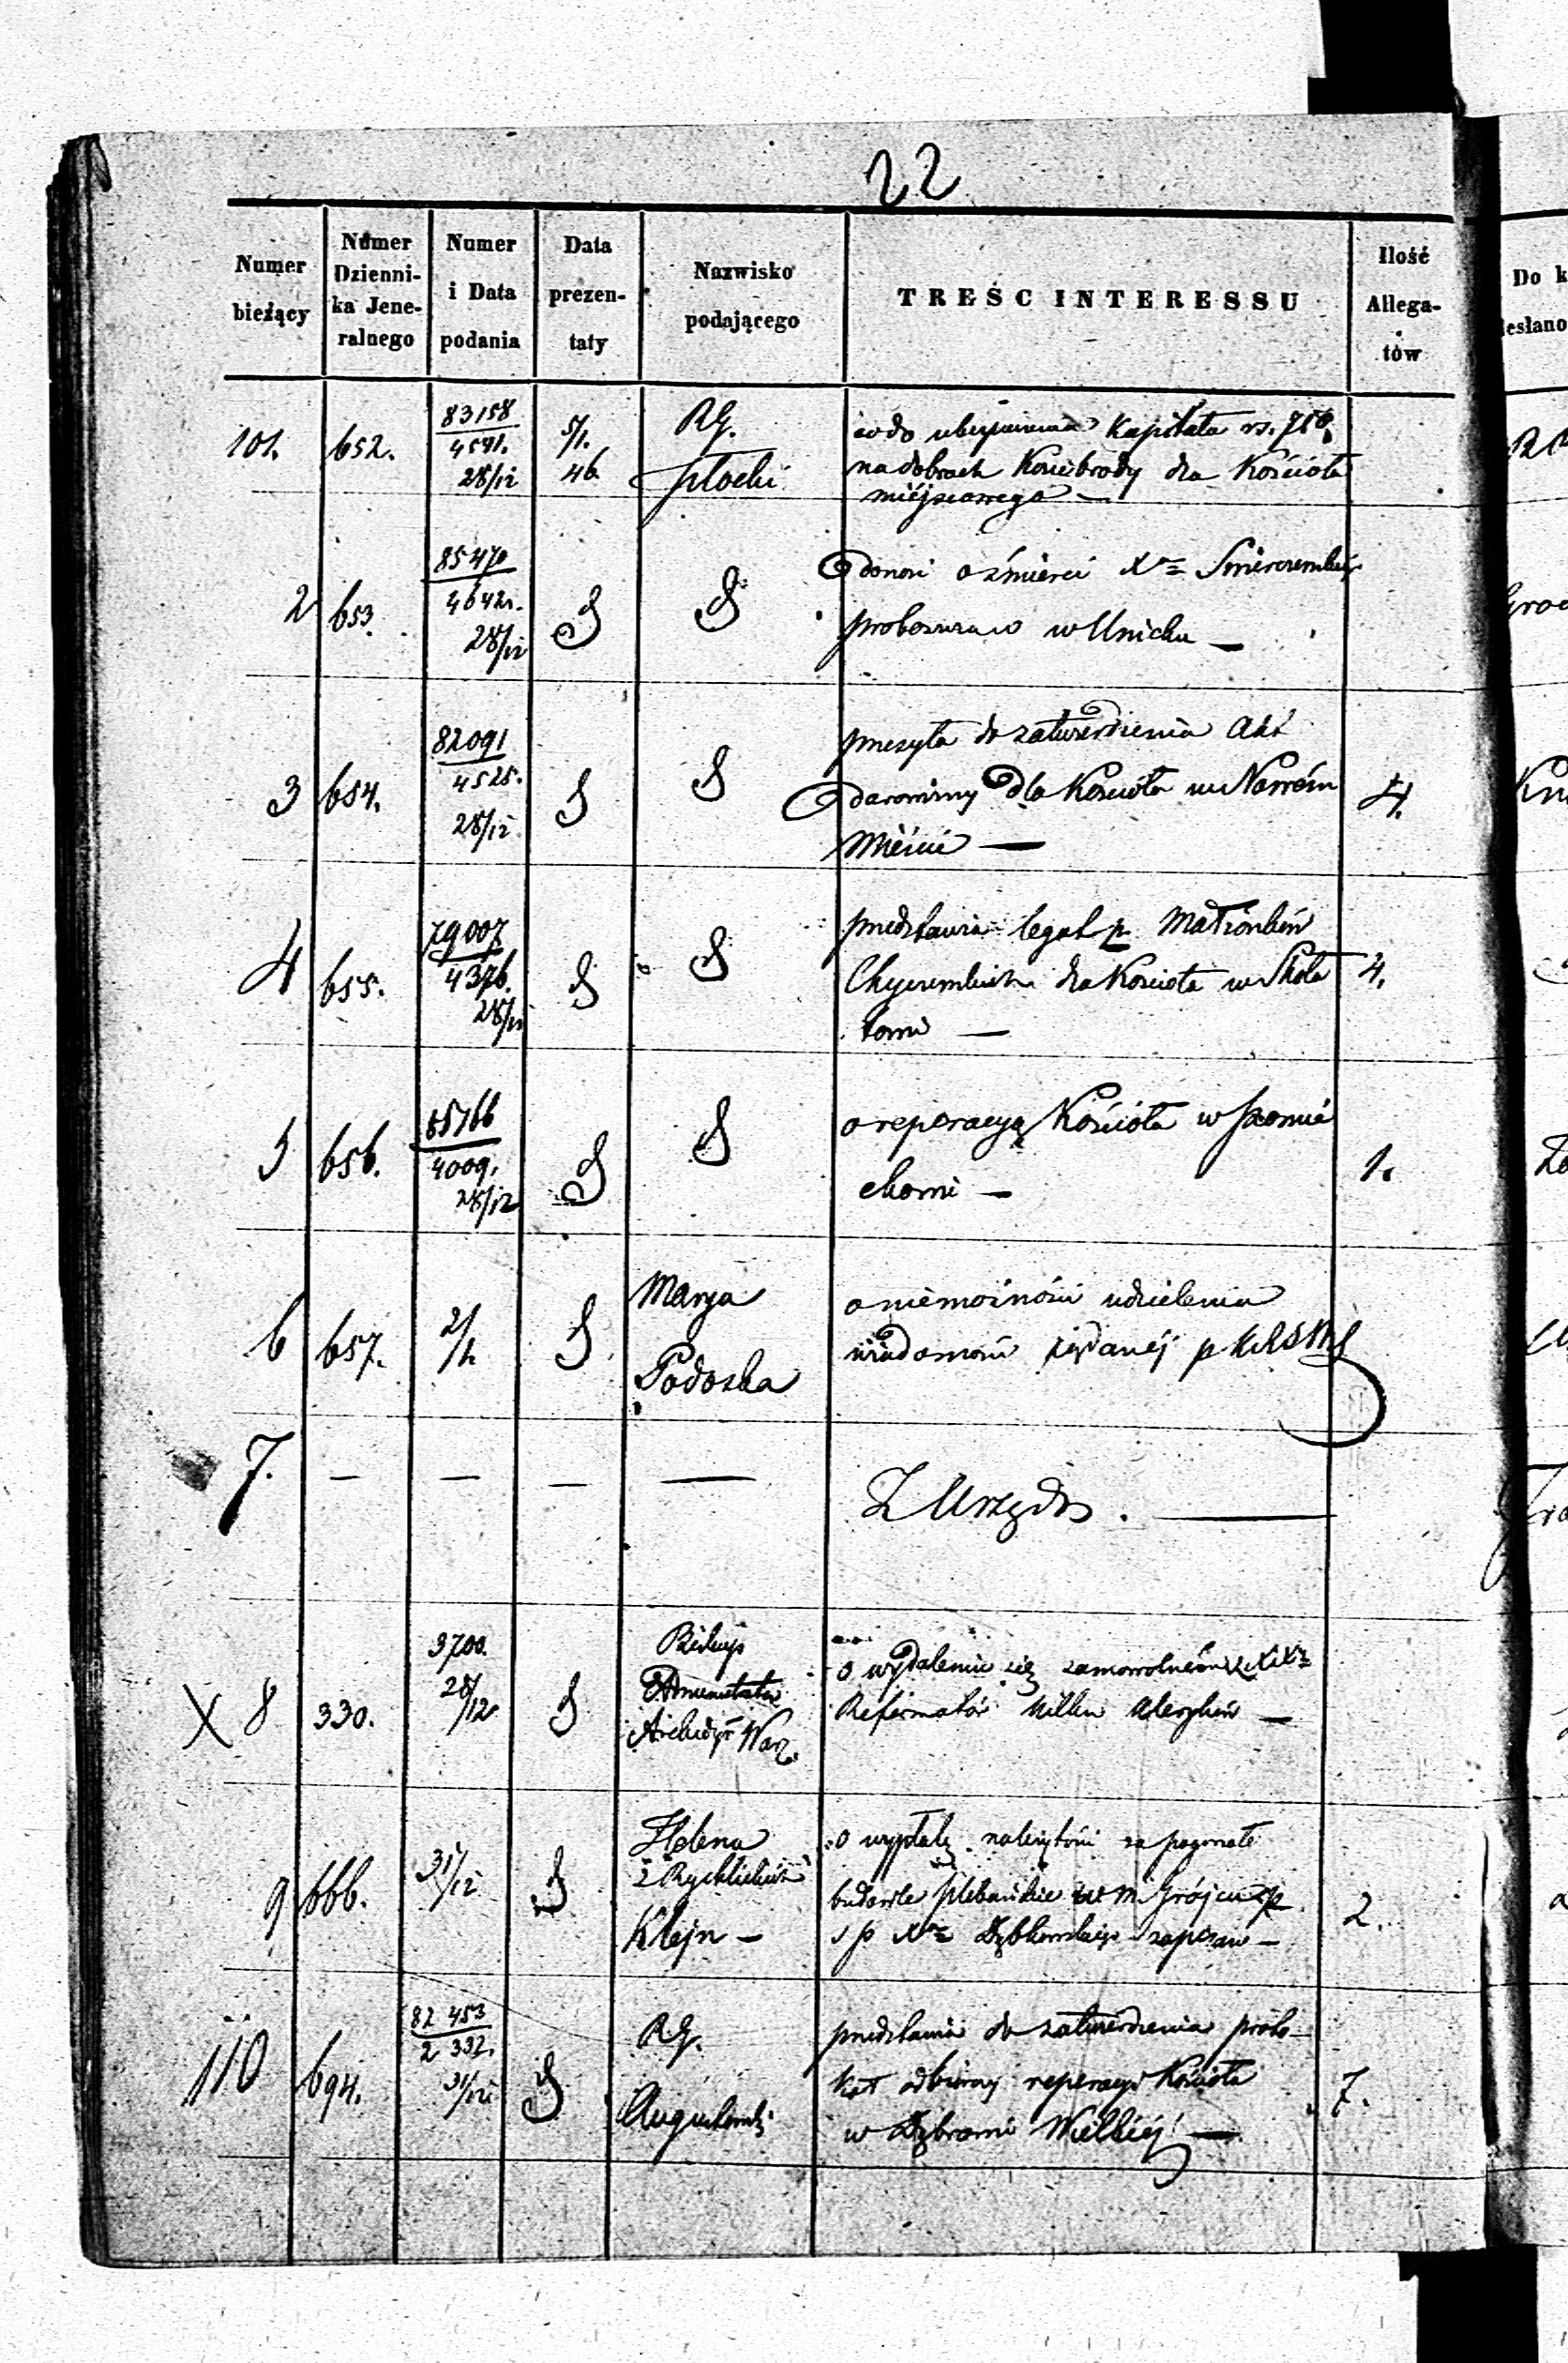 22
Numer bieżący
Numer Dzienni-ka Jene-ralnego
Numer i Data podania
Data prezen-taty
Nazwisko podającego
TREŚC INTERESSU
Ilość Allega-tów
Do k
esłano
101. 652. 83158 / 4591. 28/12 5/1. 46. RG. Płocki
co do ubezpieczenia Kapitału rs. 750.
na dobrach Kosiebrody dla Kościoła
miéjscowego —
2 653. 85470 / 4642. 28/12
donosi o śmierci Xdza
proboszcza w Unicku —
3 654. 82091 / 4525. 28/12
przesyła do zatwierdzenia Akt
darowizny dla Kościoła w Nowém 4.
Mieście —
4 655. 79007 / 4376. 28/12
przedstawia legat p. Małżonków
dla Kościoła w Skoła 4.
towie —
5 656. 65766 / 4009. 28/12
o reperacyą Kościoła w Pomie
chowie — 1.
6 657. 2/1. Marya Podoska
o niemożności udzielenia
wiadomości żądanéj p
7. — — — —
Z Urzędu. —
X 8 330. 3700. 28/12 Biskup Administrator Archidyi Warz.
o wydaleniu się samowolném z XX
Reformatów kilku Kleryków —
9 666. 31/12 Helena z Rychlickich Klejn —
o wypłatę należytości za pogorzałe
budowle plebańskie w m. Grójcu p
ś p Xdza Dąbkowskiego — 2.
110 694. 82 453 / 2 332. 31/12 RG. Augustowski
przedstawia do zatwierdzenia proto
kół odbiorczy reperacyi Kościoła 7.
w Dąbrowie Wielkiéj —